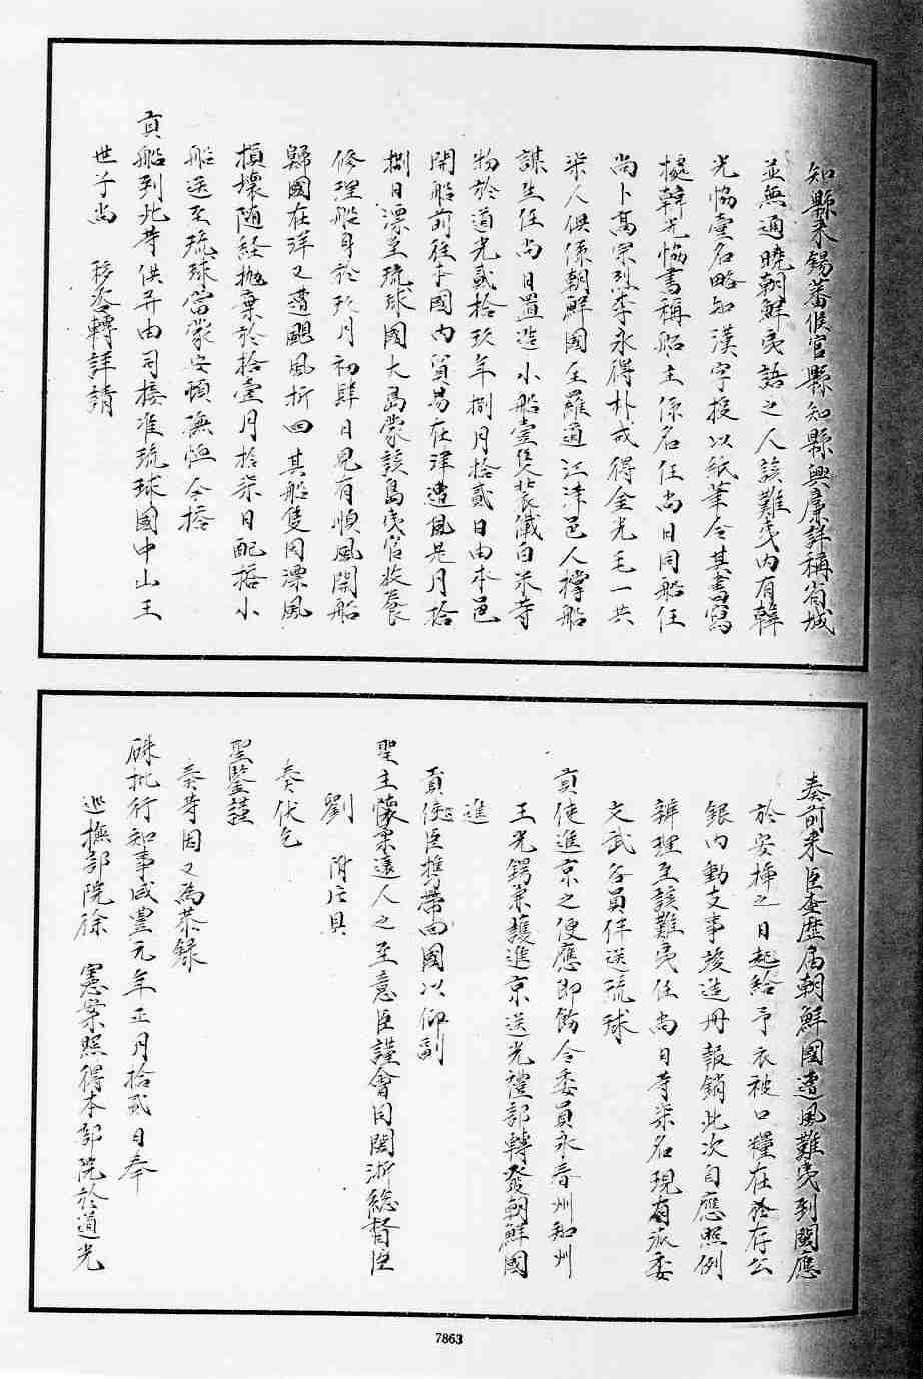 知縣來錫蕃候官縣知縣興廉詳稱省城
並無通曉朝鮮夷語之人該難夷內有韓
光恊壹名略知漢字授以紙筆令其書寫
據韓光恊書稱船主係名任尚日同船任
尚卜高宗烈李永得朴戒得金光毛一共
柒人俱係朝鮮國全羅道江津邑人撐船
謀生任尚日置造小船壹隻裝儎白米等
物於道光貳拾玖年捌月拾貳日由本邑
開船前往本國內貿易在津遭風是月拾
捌日漂至琉球國大島蒙該島夷官收養
修理船身於玖月初肆日見有順風開船
歸國在洋又遭颶風折回其船隻因漂風
損壞随經拋棄於拾壹月拾柒日配搭小
船送至琉球當蒙安頓撫恤今搭
貢船到此等供并由司接准琉球國中山王
世子尚 移咨轉詳請
奏前來臣查歷屆朝鮮國遭風難夷到閩應
於安揷之日起給予衣被口糧在於存公
銀內動支事竣造册報銷此次自應照例
辦理至該難夷任尚日等柒名現有派委
文武各員伴送琉球
貢使進京之便應即飭令委員永春州知州
王光鍔兼護進京送光禮部轉發朝鮮國
進
貢使臣携帶回國以仰副
聖主懷柔遠人之至意臣謹會同閩浙總督臣
劉 附片具
奏伏乞
聖鑒謹
奏等因又為恭錄
硃批行知事咸豐元年正月拾貳日奉
巡撫部院徐 憲案照得本部院於道光
7863